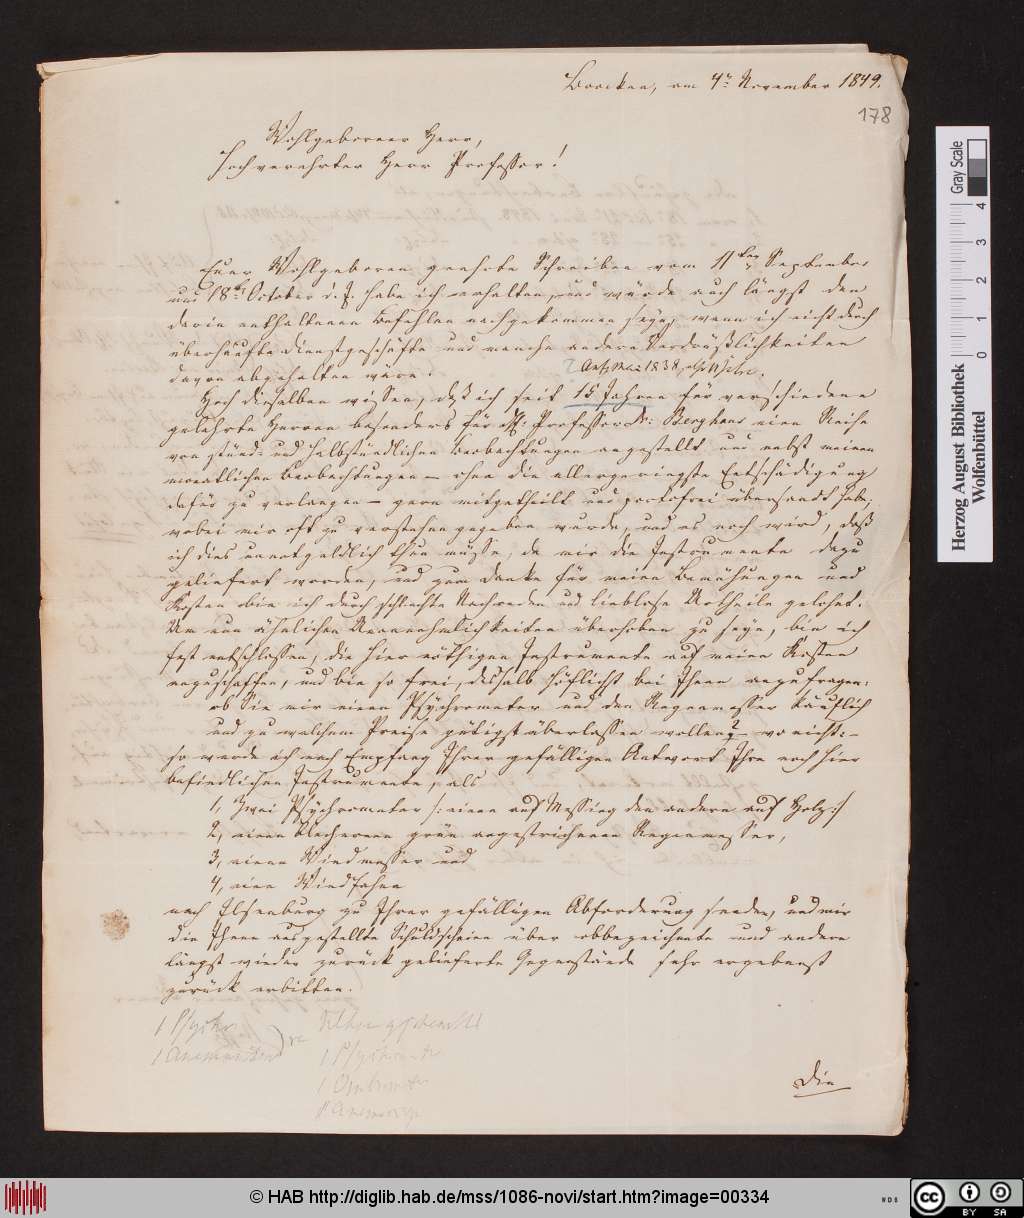 Brocken, am 4ten November 1849.
178
Wohlgeborner Herr,
Hochverehrter Herr Professor!
Euer Wohlgeboren geehrte Schreiben vom 11ten September
und 18ten October d. J. habe ich erhalten, und würde auch längst den
darin enthaltenen Befehlen nachgekommen seyn, wenn ich nicht durch
überhäufte Dienstgeschäfte und manche andere Verdrüßlichkeiten
davon abgehalten wäre.
Mai 1838, 11 Jahre.
Hoch dieselben wissen, daß ich seit 15 Jahren für verschiedene
gelehrte Herren besonders für H: Professor Dr: Berghaus eine Reihe
von stünd- und halbstündlichen Beobachtungen angestellt und nebst meinen
monatlichen Beobachtungen – ohne die allergeringste Entschädigung
dafür zu verlangen – gern mitgetheilt und portofrei übersandt habe,
wobei mir oft zu verstehen gegeben wurde, und es noch wird, daß
ich dies unentgeldlich thun müsse, da mir die Instrumente dazu
geliefert worden, und zum Danke für meine Bemühungen und
Kosten bin ich durch schlechte Nachreden und lieblose Urtheile gelohnt.
Um nun ähnlichen Unannehmlichkeiten überhoben zu seyn, bin ich
fest entschlossen, die hier nöthigen Instrumente auf meine Kosten
anzuschaffen, und bin so frei, deshalb höflichst bei Ihnen anzufragen:
ob Sie mir einen Psychrometer und den Regenmesser käuflich
und zu welchem Preise gütigst überlassen wollen? – wo nicht: –
so werde ich nach Empfang Ihrer gefälligen Antwort Ihre noch hier
befindlichen Instrumente, als
1, Zwei Psychrometer /: einen auf Messing den andern auf Holz :/
2, einen blechernen grün angestrichenen Regenmesser,
3, einen Windmesser und
4, eine Windfahne
nach Ilsenburg zu Ihrer gefälligen Abforderung senden, und mir
die Ihnen ausgestellte Schuldscheine über obbezeichnete und andere
längst wieder zurück gelieferte Gegenstände sehr ergebenst
zurück erbitten.
1 Psychr
1
1 Psychrometer
1 Ombrometer
1
Die
Herzog August Bibliothek
Wolfenbüttel
Gray Scale
0 1 2 3 4
© HAB http://diglib.hab.de/mss/1086-novi/start.htm?image=00334
WDB
cc BY SA